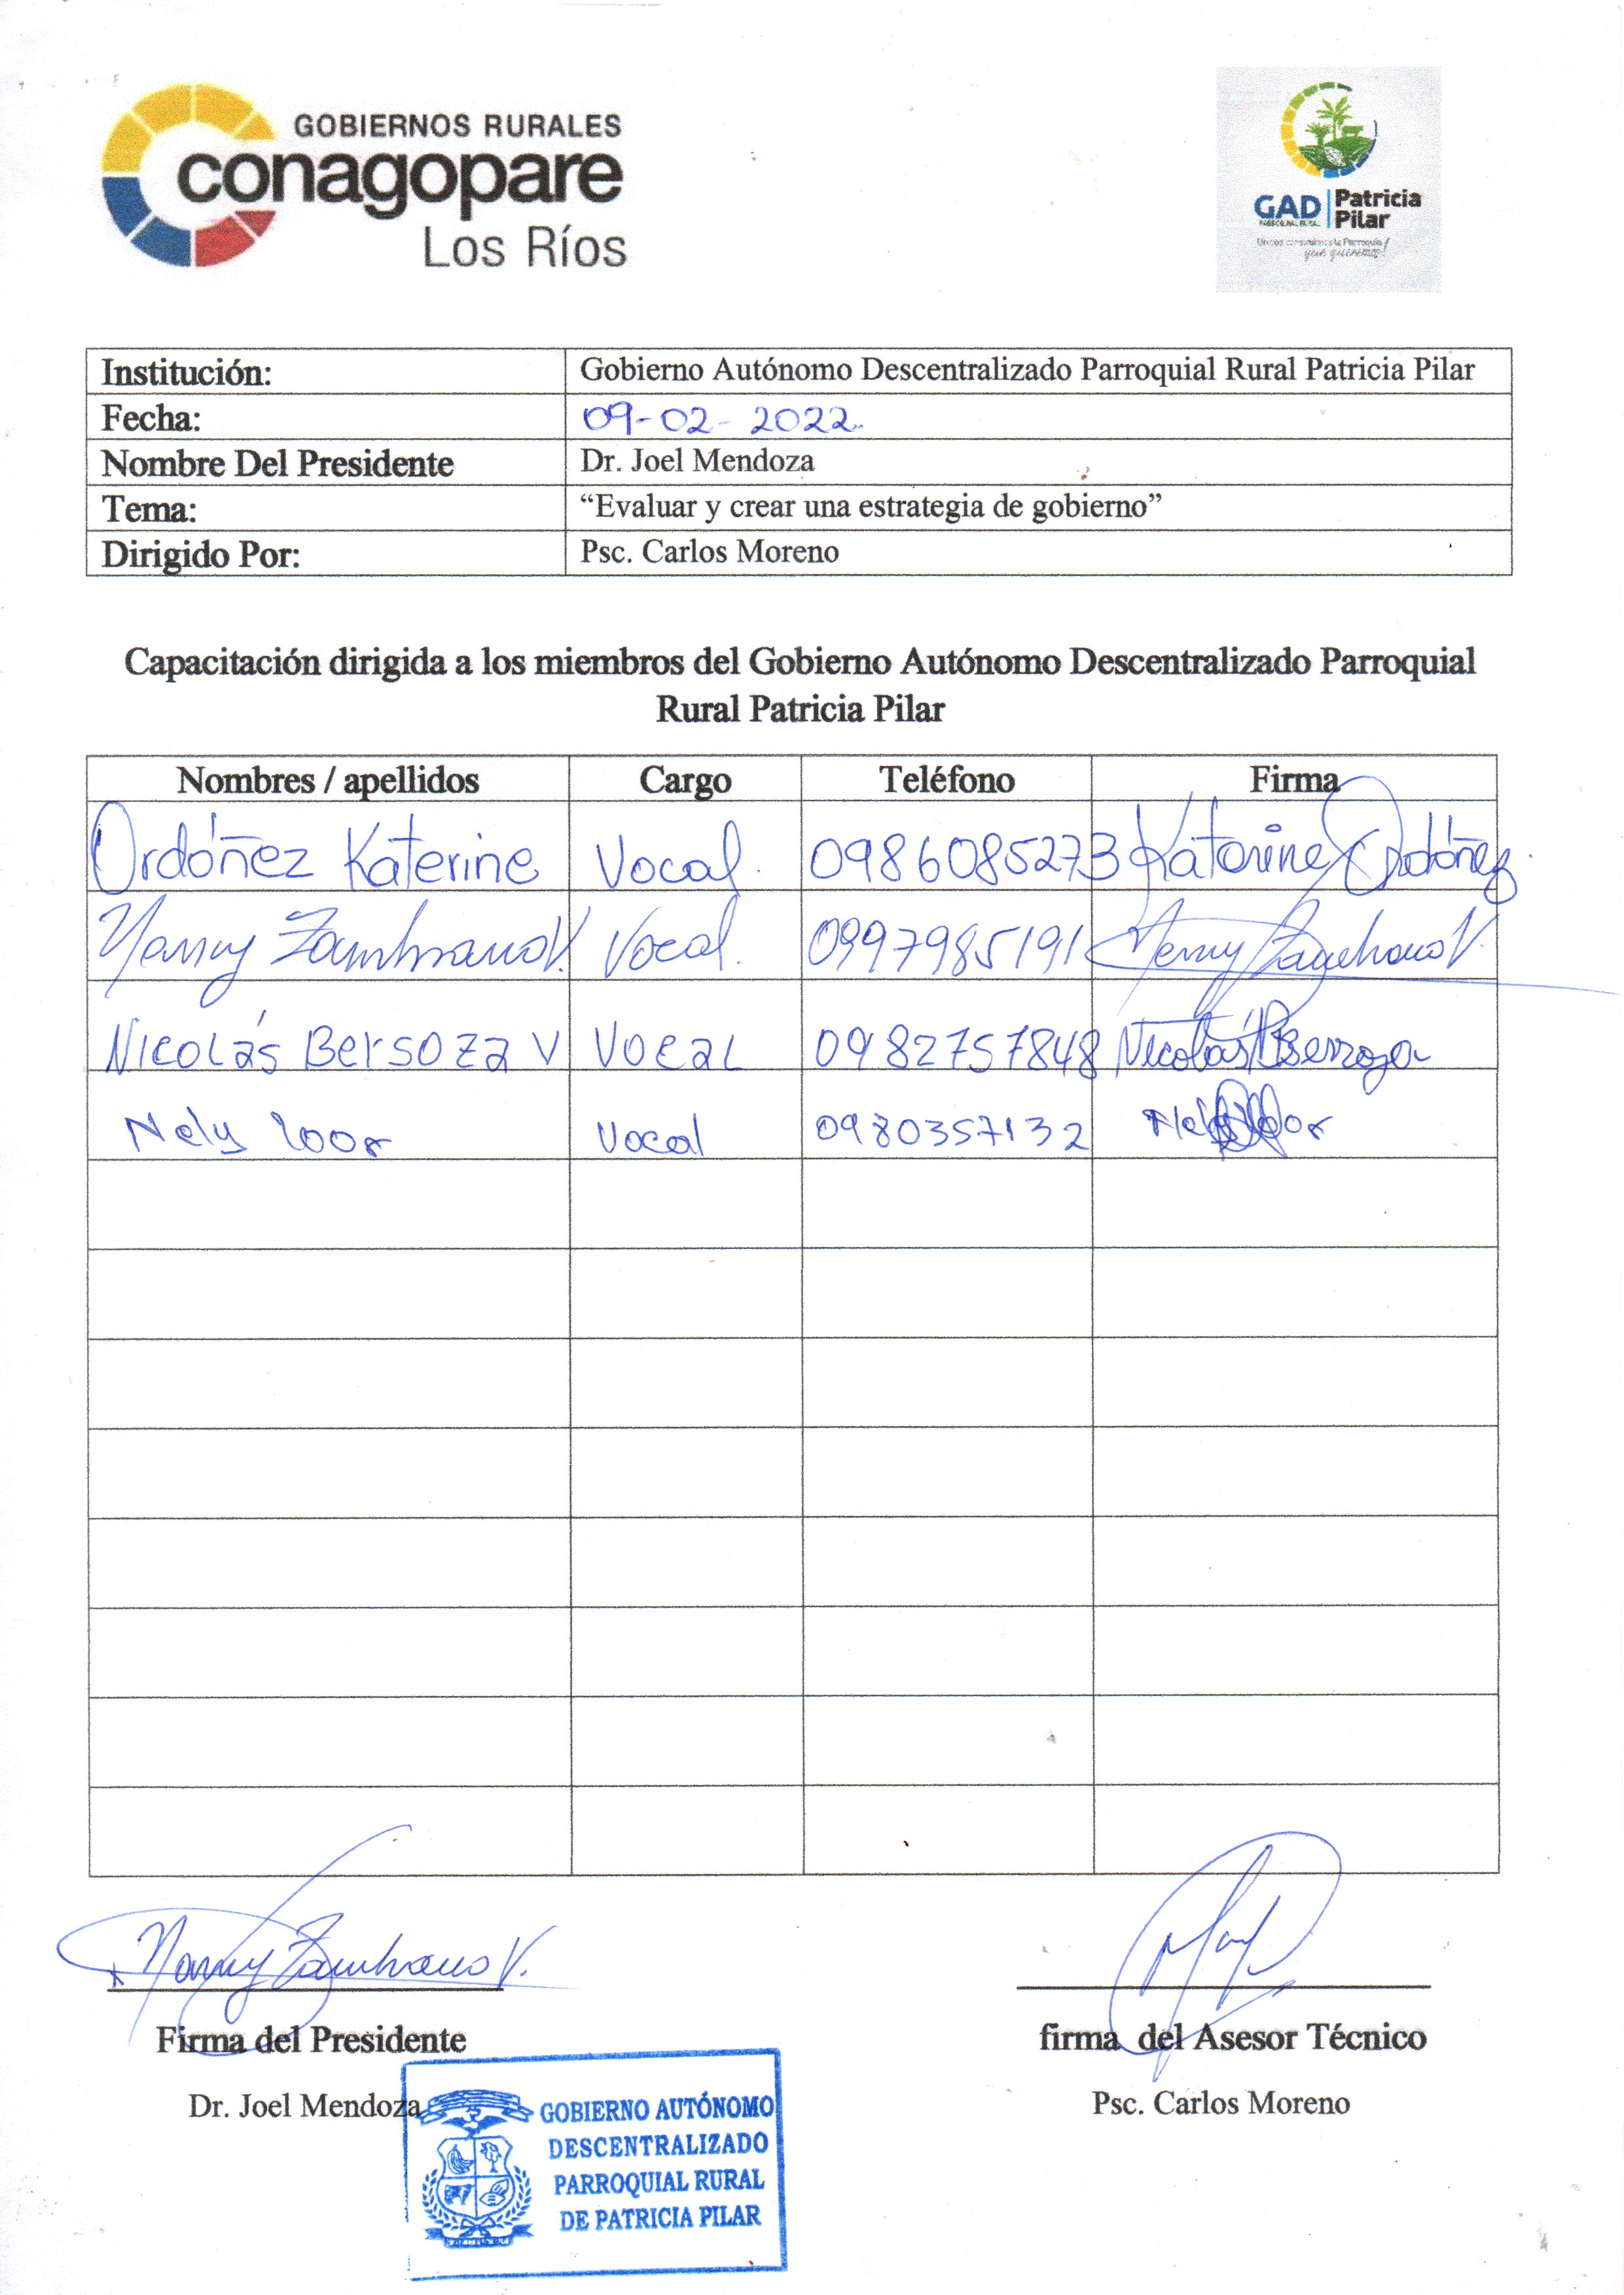 GOBIERNOS RURALES
conagopare
Los Ríos
GAD Patricia Pilar
Institución: Gobierno Autónomo Descentralizado Parroquial Rural Patricia Pilar
Fecha: 09-02-2022
Nombre Del Presidente Dr. Joel Mendoza
Tema: “Evaluar y crear una estrategia de gobierno”
Dirigido Por: Psc. Carlos Moreno
Capacitación dirigida a los miembros del Gobierno Autónomo Descentralizado Parroquial
Rural Patricia Pilar
Nombres / apellidos Cargo Teléfono Firma
Ordóñez Katerine Vocal. 0986085273 Katerine Ordóñez
Nancy Zambrano V. Vocal. 0997985191 Nancy Zambrano V.
Nicolás Bersoza V Vocal 0982757848 Nicolás Berzoza
Nely Loor Vocal 0980357132 Nely Loor
Nancy Zambrano V.
Firma del Presidente firma del Asesor Técnico
Dr. Joel Mendoza Psc. Carlos Moreno
GOBIERNO AUTÓNOMO
DESCENTRALIZADO
PARROQUIAL RURAL
DE PATRICIA PILAR